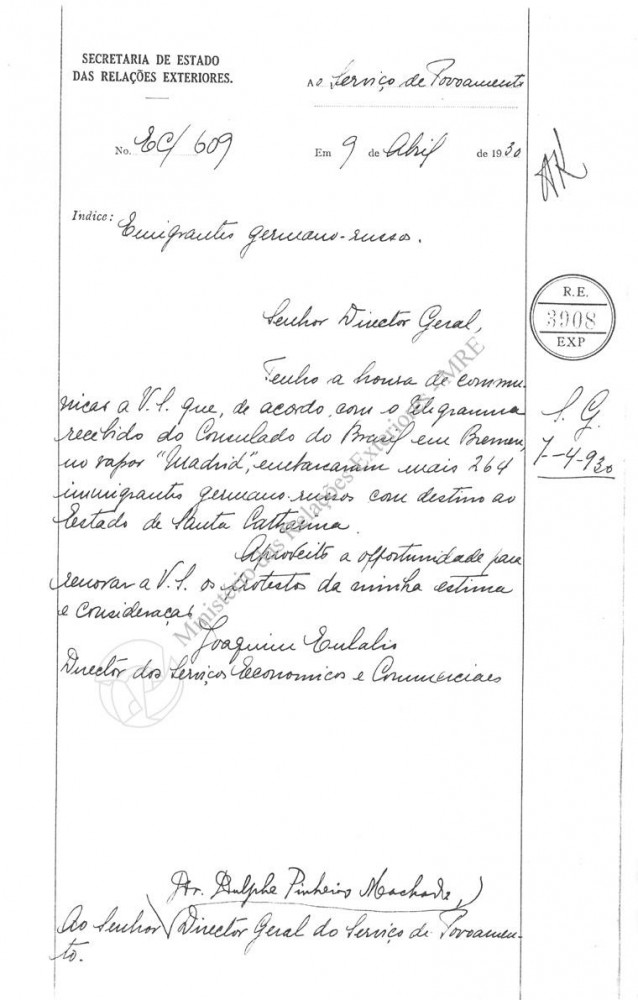 SECRETARIA DE ESTADO
DAS RELAÇÕES EXTERIORES.
Ao Serviço de Povoamento
No. EC/609
Em 9 de Abril de 1930
Indice: Emigrantes germano-russos.
R.E.
3908
EXP
Senhor Director Geral,
Tenho a honra de commu-
nicar a V.S. que, de acordo com o telegramma
recebido do Consulado do Brasil em Bremen,
no vapor "Madrid", embarcaram mais 264
immigrantes germano-russos com destino ao
Estado de Santa Catharina.
S. G.
7-4-930
Aproveito a opportunidade para
renovar a V.S. os protestos da minha estima
e consideração
Joaquim Eulalio
Director dos Serviços Economicos e Commerciaes
Ministério das Relações Exteriores - MRE
Dr. Dulphe Pinheiro Machado,
Ao Senhor Director Geral do Serviço de Povoamen-
to.